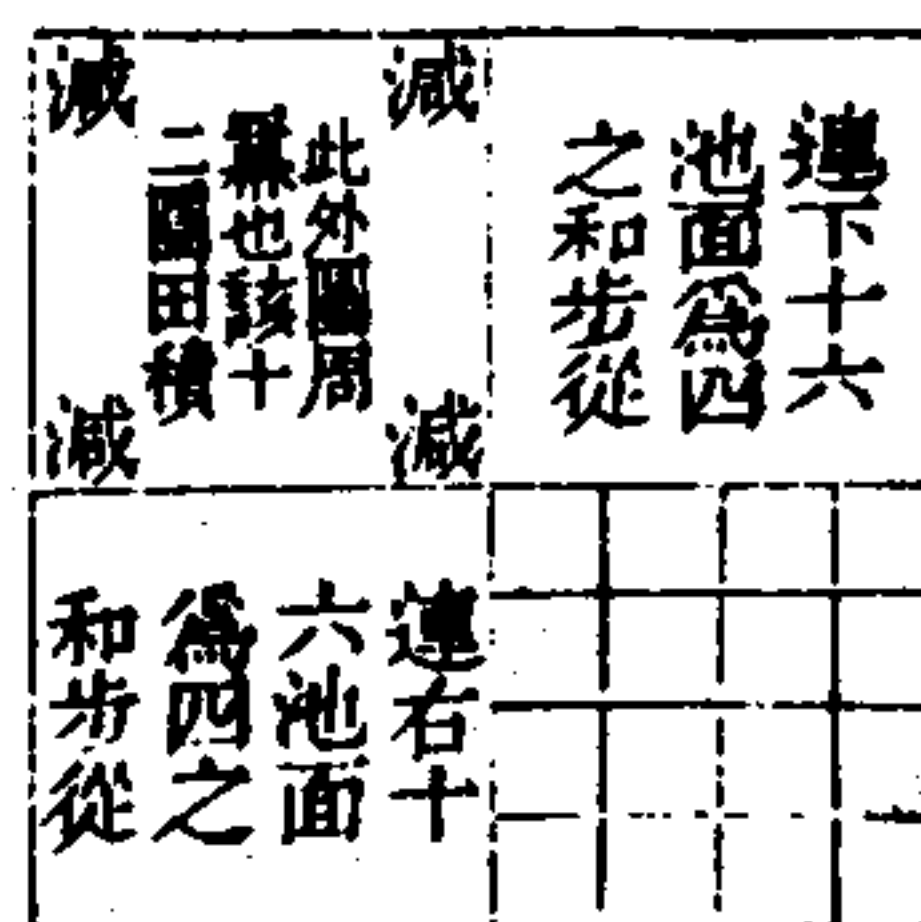 連下十六
池面爲四
之和步從
減
減
此外圓周
羃也該十
二圓田積
減
減
連右十
六池面
爲四之
和步從